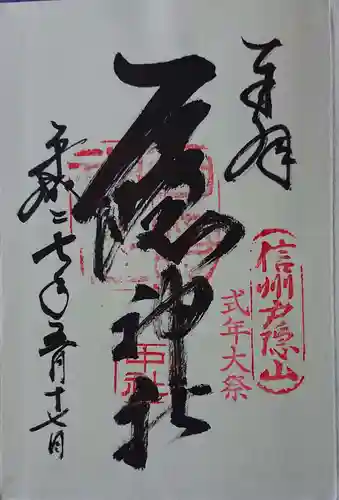 奉拝
信州戸隠山
式年大祭
戸隠神社
中社
平成二十七年五月十七日